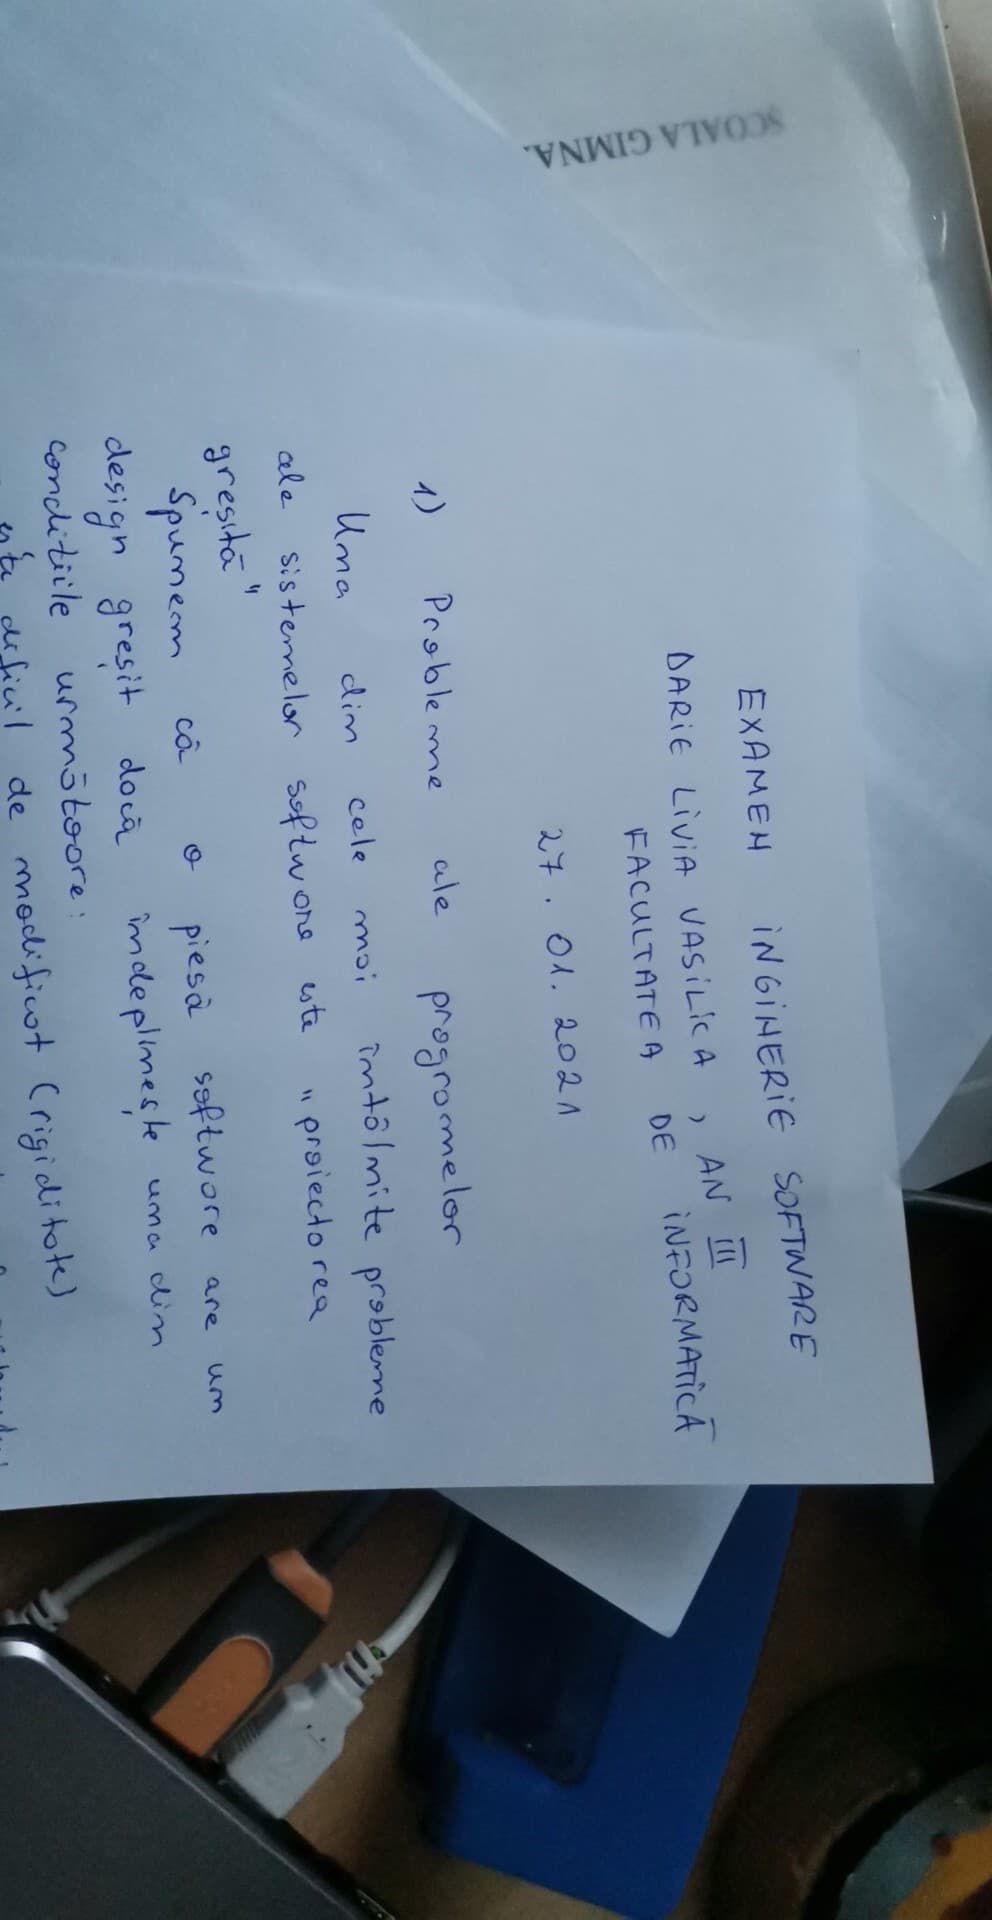 ȘCOALA GIMNA.
EXAMEN INGINERIE SOFTWARE
DARIE LIVIA VASILICA, AN III
FACULTATEA DE INFORMATICĂ
27.01.2021
1) Probleme ale programelor
Una din cele mai întâlnite probleme
ale sistemelor software este "proiectarea
greșită"
Spunem că o piesă software are un
design greșit dacă îndeplinește una din
condițiile următoare:
este dificil de modificat (rigiditate)